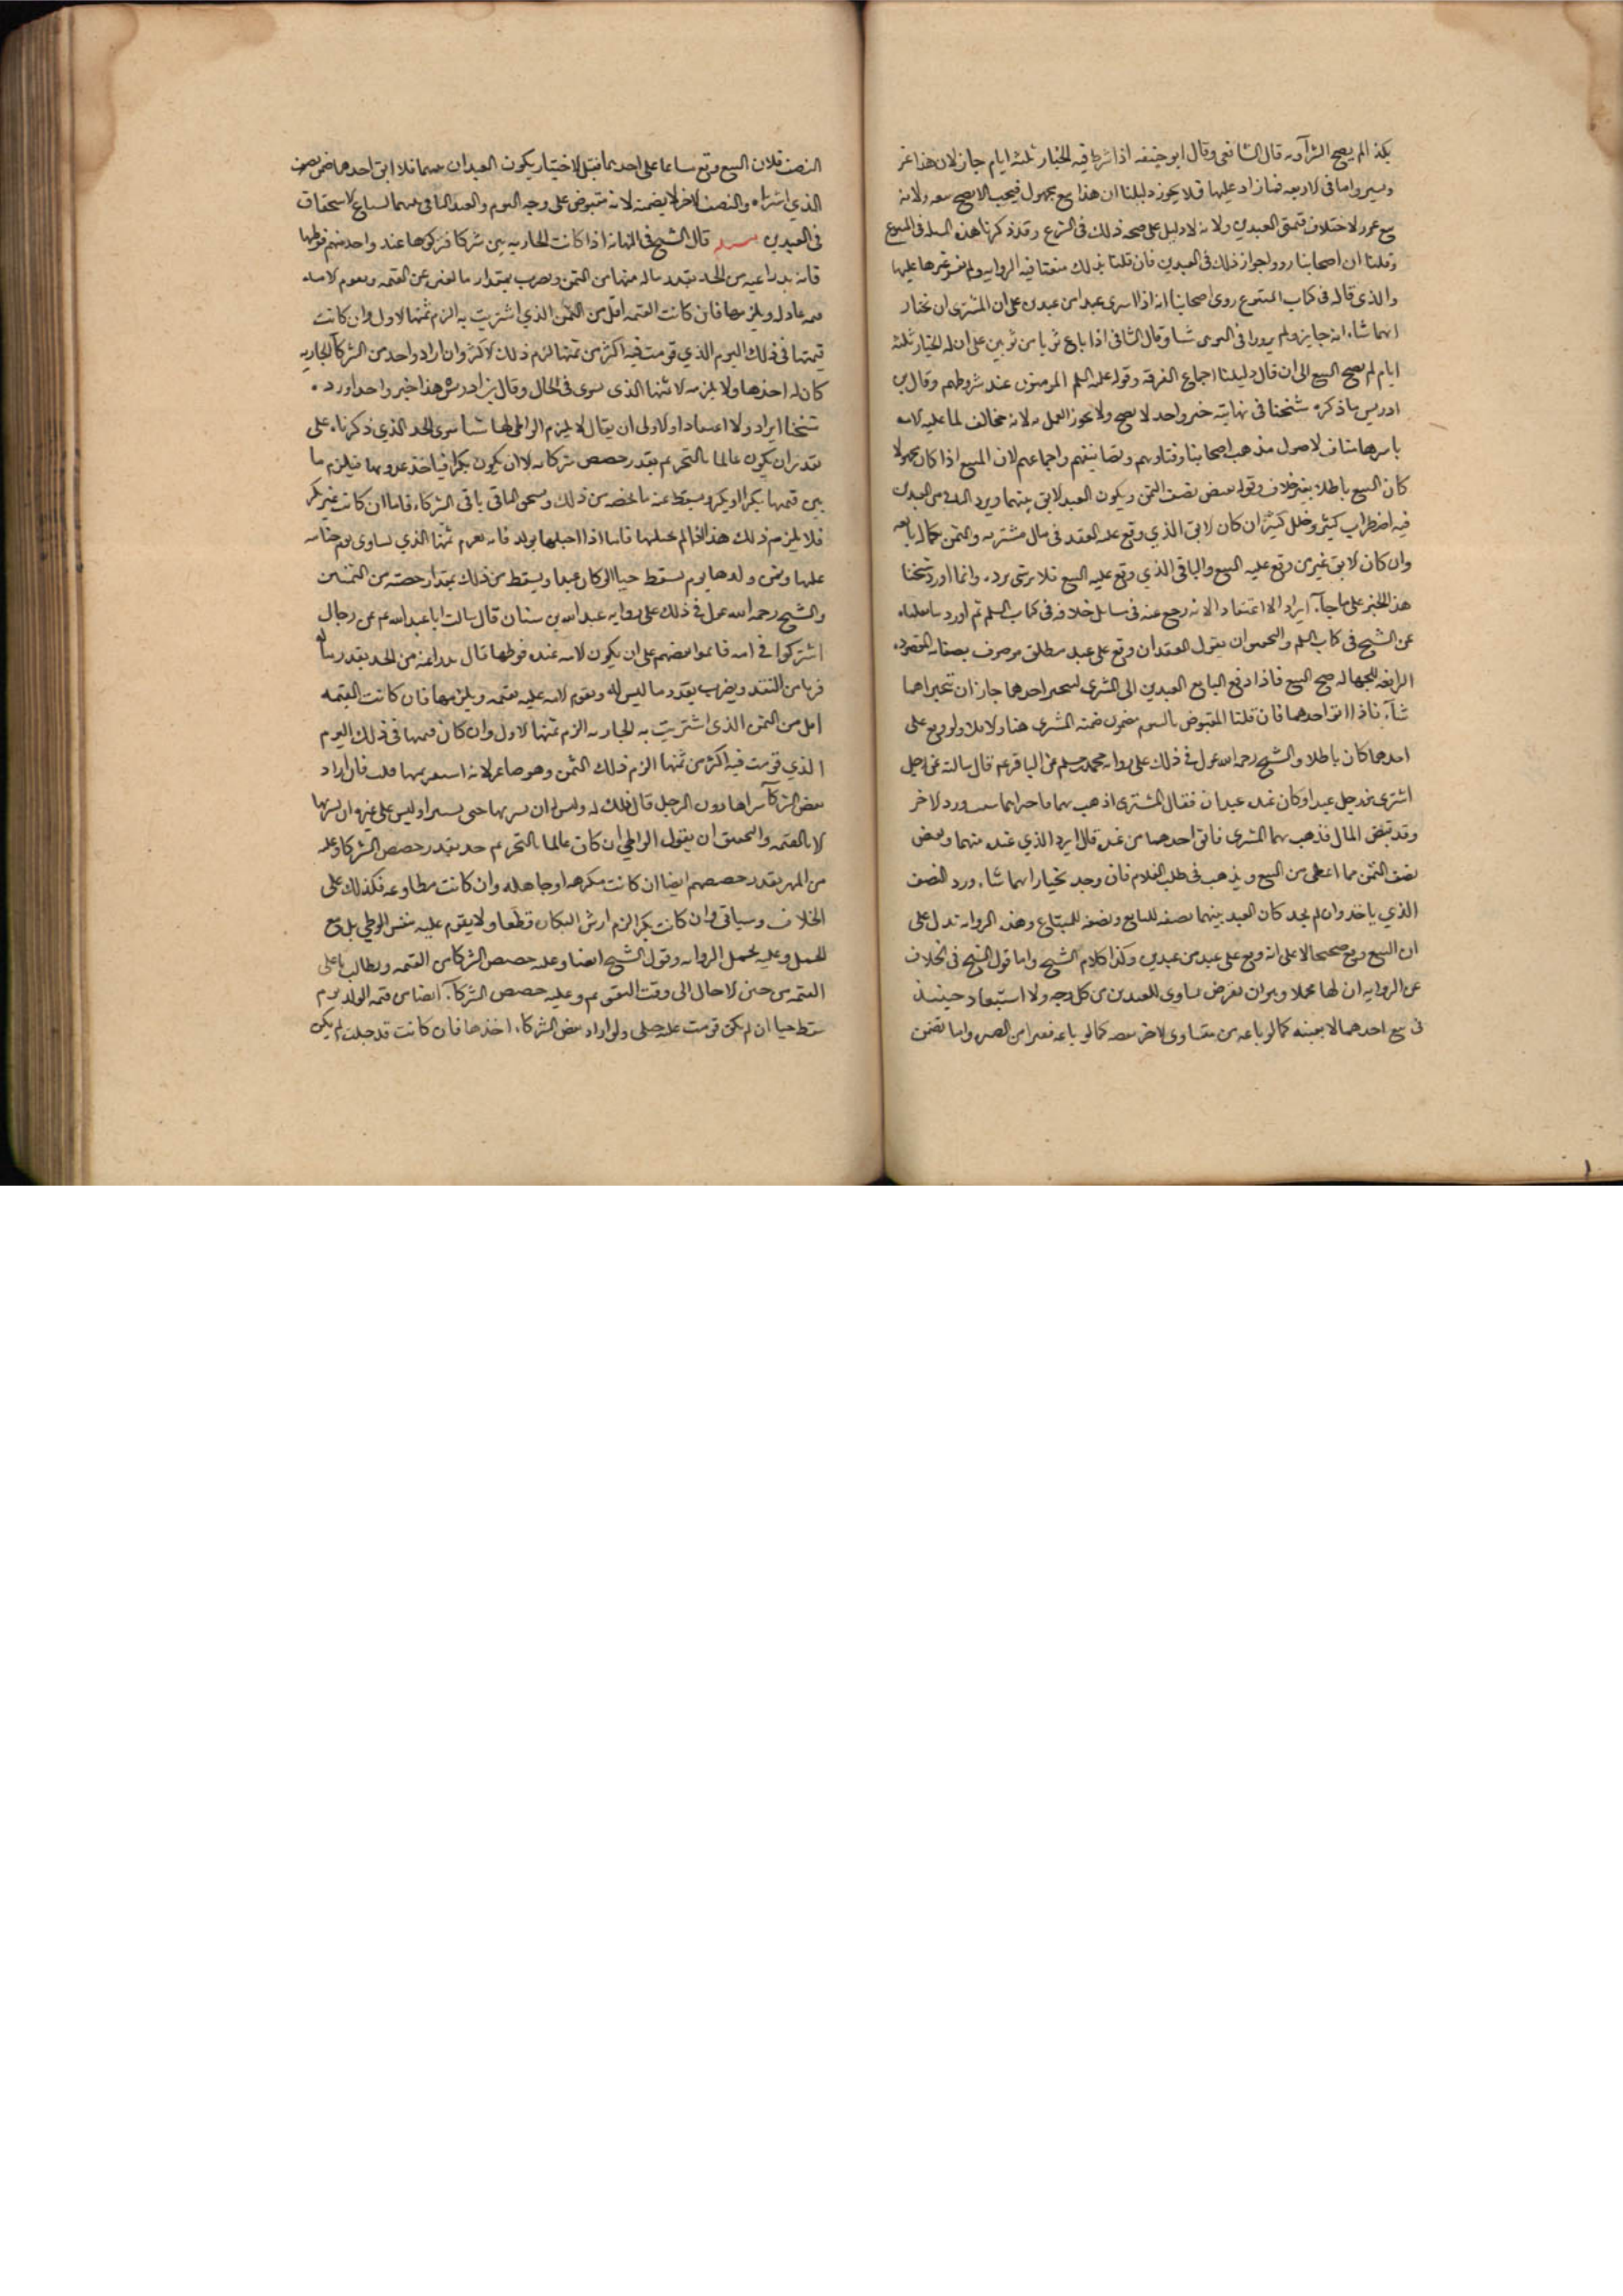 بكذا لم يصح الشرآء وبه قال الشافعى وقال ابو حنيفه اذا شرط فيه الخيار ثلثه ايام جاز لان هذا غرر
يسير واما فى الاربعه فما زاد عليها فلا يجوز دليلنا ان هذا بيع مجهول فيجب الا يصح بيعه ولانه
بيع غرر لاختلاف قيمتى العبدين ولانه لا دليل على صحه ذلك فى الشرع وقد ذكرنا هذه المسله فى البيوع
وقلنا ان اصحابنا رووا جواز ذلك فى العبدين فان قلنا بذلك تبعنا فيه الروايه ولم نقس غيرها عليها
والذى قاله فى كتاب البيوع روى اصحابنا انه اذا اشترى عبدا من عبدين على ان للمشترى ان يختار
ايهما شاء انه جايز ولم يرووا فى الثوبين شيا وقال الشافعى اذا باع ثوبا من ثوبين على ان له الخيار ثلثه
ايام لم يصح البيع الى ان قال دليلنا اجماع الفرقه وقوله عليه السلم المومنون عند شروطهم وقال بن
ادريس ما ذكره شيخنا فى نهايته خبر واحد لا يصح ولا يجوز العمل به لانه مخالف لما عليه الامه
باسرها مناف لاصول مذهب اصحابنا وفتاويهم وتصانيفهم واجماعهم لان المبيع اذا كان مجهولا
كان البيع باطلا بغير خلاف وقوله يقبض نصف الثمن ويكون العبد الابق بينهما ويرد الباقى من العبدين
فيه اضطراب كثير وخلل كبير ان كان الابق الذي وقع عليه العقد فى مال مشتريه والثمن بكماله لبايعه
وان كان الابق غير من وقع عليه البيع والباقى الذي وقع عليه البيع فلاى شى يرده وانما اورد شيخنا
هذا الخبر على ما جآء ايرادا لا اعتقادا لانه رجع عنه فى مسايل خلافه فى كتاب السلم ثم اورد ما نقلناه
عن الشيخ فى كتاب السلم والتحقيق ان نقول العقد ان وقع على عبد مطلق موصوف بصفاته المقصوده
الرافعه للجهاله صح البيع فاذا دفع البايع العبدين الى المشترى ليتخير احدهما جاز ان تتخير ايهما
شآء فاذا ابق احدهما فان قلنا المقبوض بالسوم مضمون ضمنه المشترى هنا والا فلا ولو وقع على
احدهما كان باطلا والشيخ رحمه الله عول فى ذلك على روايه محمد بن مسلم عن الباقر عم قال سالته عن رجل
اشترى من رجل عبدا وكان عنده عبدان فقال للمشترى اذهب بهما فاختر ايهما شيت ورد الاخر
وقد قبض المال فذهب بهما المشترى فابق احدهما من عنده قال ليرد الذي عنده منهما ويقبض
نصف الثمن مما اعطى من البيع ويذهب فى طلب الغلام فان وجده يختار ايهما شاء ورد النصف
الذي ياخذ وان لم يجد كان العبد بينهما نصفه للبايع ونصفه للمبتاع وهذه الروايه تدل على
ان البيع وقع صحيحا لا على انه وقع على عبد من عبدين وكذا كلام الشيخ واما قول الشيخ فى الخلاف
عن الروايه ان لها محملا وهو ان يفرض تساوى العبدين من كل وجه ولا استبعاد حينيذ
فى بيع احدهما لا بعينه كما لو باعه من متساوى الاجزا بعضه كما لو باعه قفيزا من الصبره واما تضمن
النصف فلان البيع وقع مشاعا على احدهما فقبل الاختيار يكون العبدان بينهما فلما ابق احدهما ضمن نصفه
الذي اشتراه والنصف الاخر لا يضمنه لانه مقبوض على وجه السوم والعبد الباقى بينهما لشياع الاستحقاق
فى العبدين مسله قال الشيخ فى النهايه اذا كانت الجاريه بين شركا فتركوها عند واحد منهم فوطيها
فانه يدرا عنه من الحد بقدر ماله منها من الثمن ويضرب بمقدار ما لغيره من القيمه وتقوم الامه
قيمه عادله ويلزمها فان كانت القيمه اقل من الثمن الذي اشتريت به الزم ثمنها الاول وان كانت
قيمتها فى ذلك اليوم الذي قومت فيه اكثر من ثمنها الزم ذلك الاكثر وان اراد واحد من الشركآ الجاريه
كان له اخذها ولا يلزمه الا ثمنها الذى تسوى فى الحال وقال بن ادريس هذا خبر واحد اورده
شيخنا ايرادا لا اعتقادا والاولى ان يقال لا يلزم الواطى لها شيا سوى الحد الذي ذكرناه على
تقدير ان يكون عالما بالتحريم بقدر حصص شركايه الا ان يكون بكرا فياخذ عذرتها فيلزم ما
بين قيمتها بكرا وغير بكر ويسقط عنه ما يخصه من ذلك ويستحق الباقى باقى الشركاء فاما ان كانت غير بكر
فلا يلزمه ذلك هذا اذا لم يحبلها فاما اذا احبلها بولد فانه يغرم ثمنها الذي تساوى يوم جنايته
عليها وثمن ولدها يوم يسقط حيا لو كان عبدا ويسقط من ذلك بمقدار حصته من الثمنين
والشيخ رحمه الله عول فى ذلك على روايه عبد الله بن سنان قال سالت ابا عبد الله عم عن رجال
اشتركوا فى امه فايتمنوا بعضهم على ان يكون الامه عنده فوطيها قال يدرا عنه من الحد بقدر ماله
فيها من النقد ويضرب بقدر ما ليس له وتقوم الامه عليه بقيمه ويلزمها فان كانت القيمه
اقل من الثمن الذي اشتريت به الجاريه الزم ثمنها الاول وان كان قيمتها فى ذلك اليوم
الذي قومت فيه اكثر من ثمنها الزم ذلك الثمن وهو صاغر لانه استفرشها قلت فان اراد
بعض الشركآ شراها دون الرجل قال ذلك له وليس له ان يشتريها حتى يستبرا وليس على غيره ان يشتريها
الا بالقيمه والتحقيق ان يقول الواطى ان كان عالما بالتحريم حد بقدر حصص الشركا وعليه
من المهر بقدر حصصهم ايضا ان كانت مكرهه او جاهله وان كانت مطاوعه فكذلك على
الخلاف وسياتى وان كانت بكرا لزم ارش البكاره قطعا ولا يقوم عليه بنفس الوطي بل مع
الحمل وعليه يحمل الروايه وقول الشيخ ايضا وعليه حصص الشركا من القيمه ويطالب باعلى
القيم من حين الاحبال الى وقت التقويم وعليه حصص الشركآء ايضا من قيمه الولد يوم
سقط حيا ان لم يكن قومت عليه حبلى ولو اراد بعض الشركاء اخذها فان كانت قد حبلت لم يكن